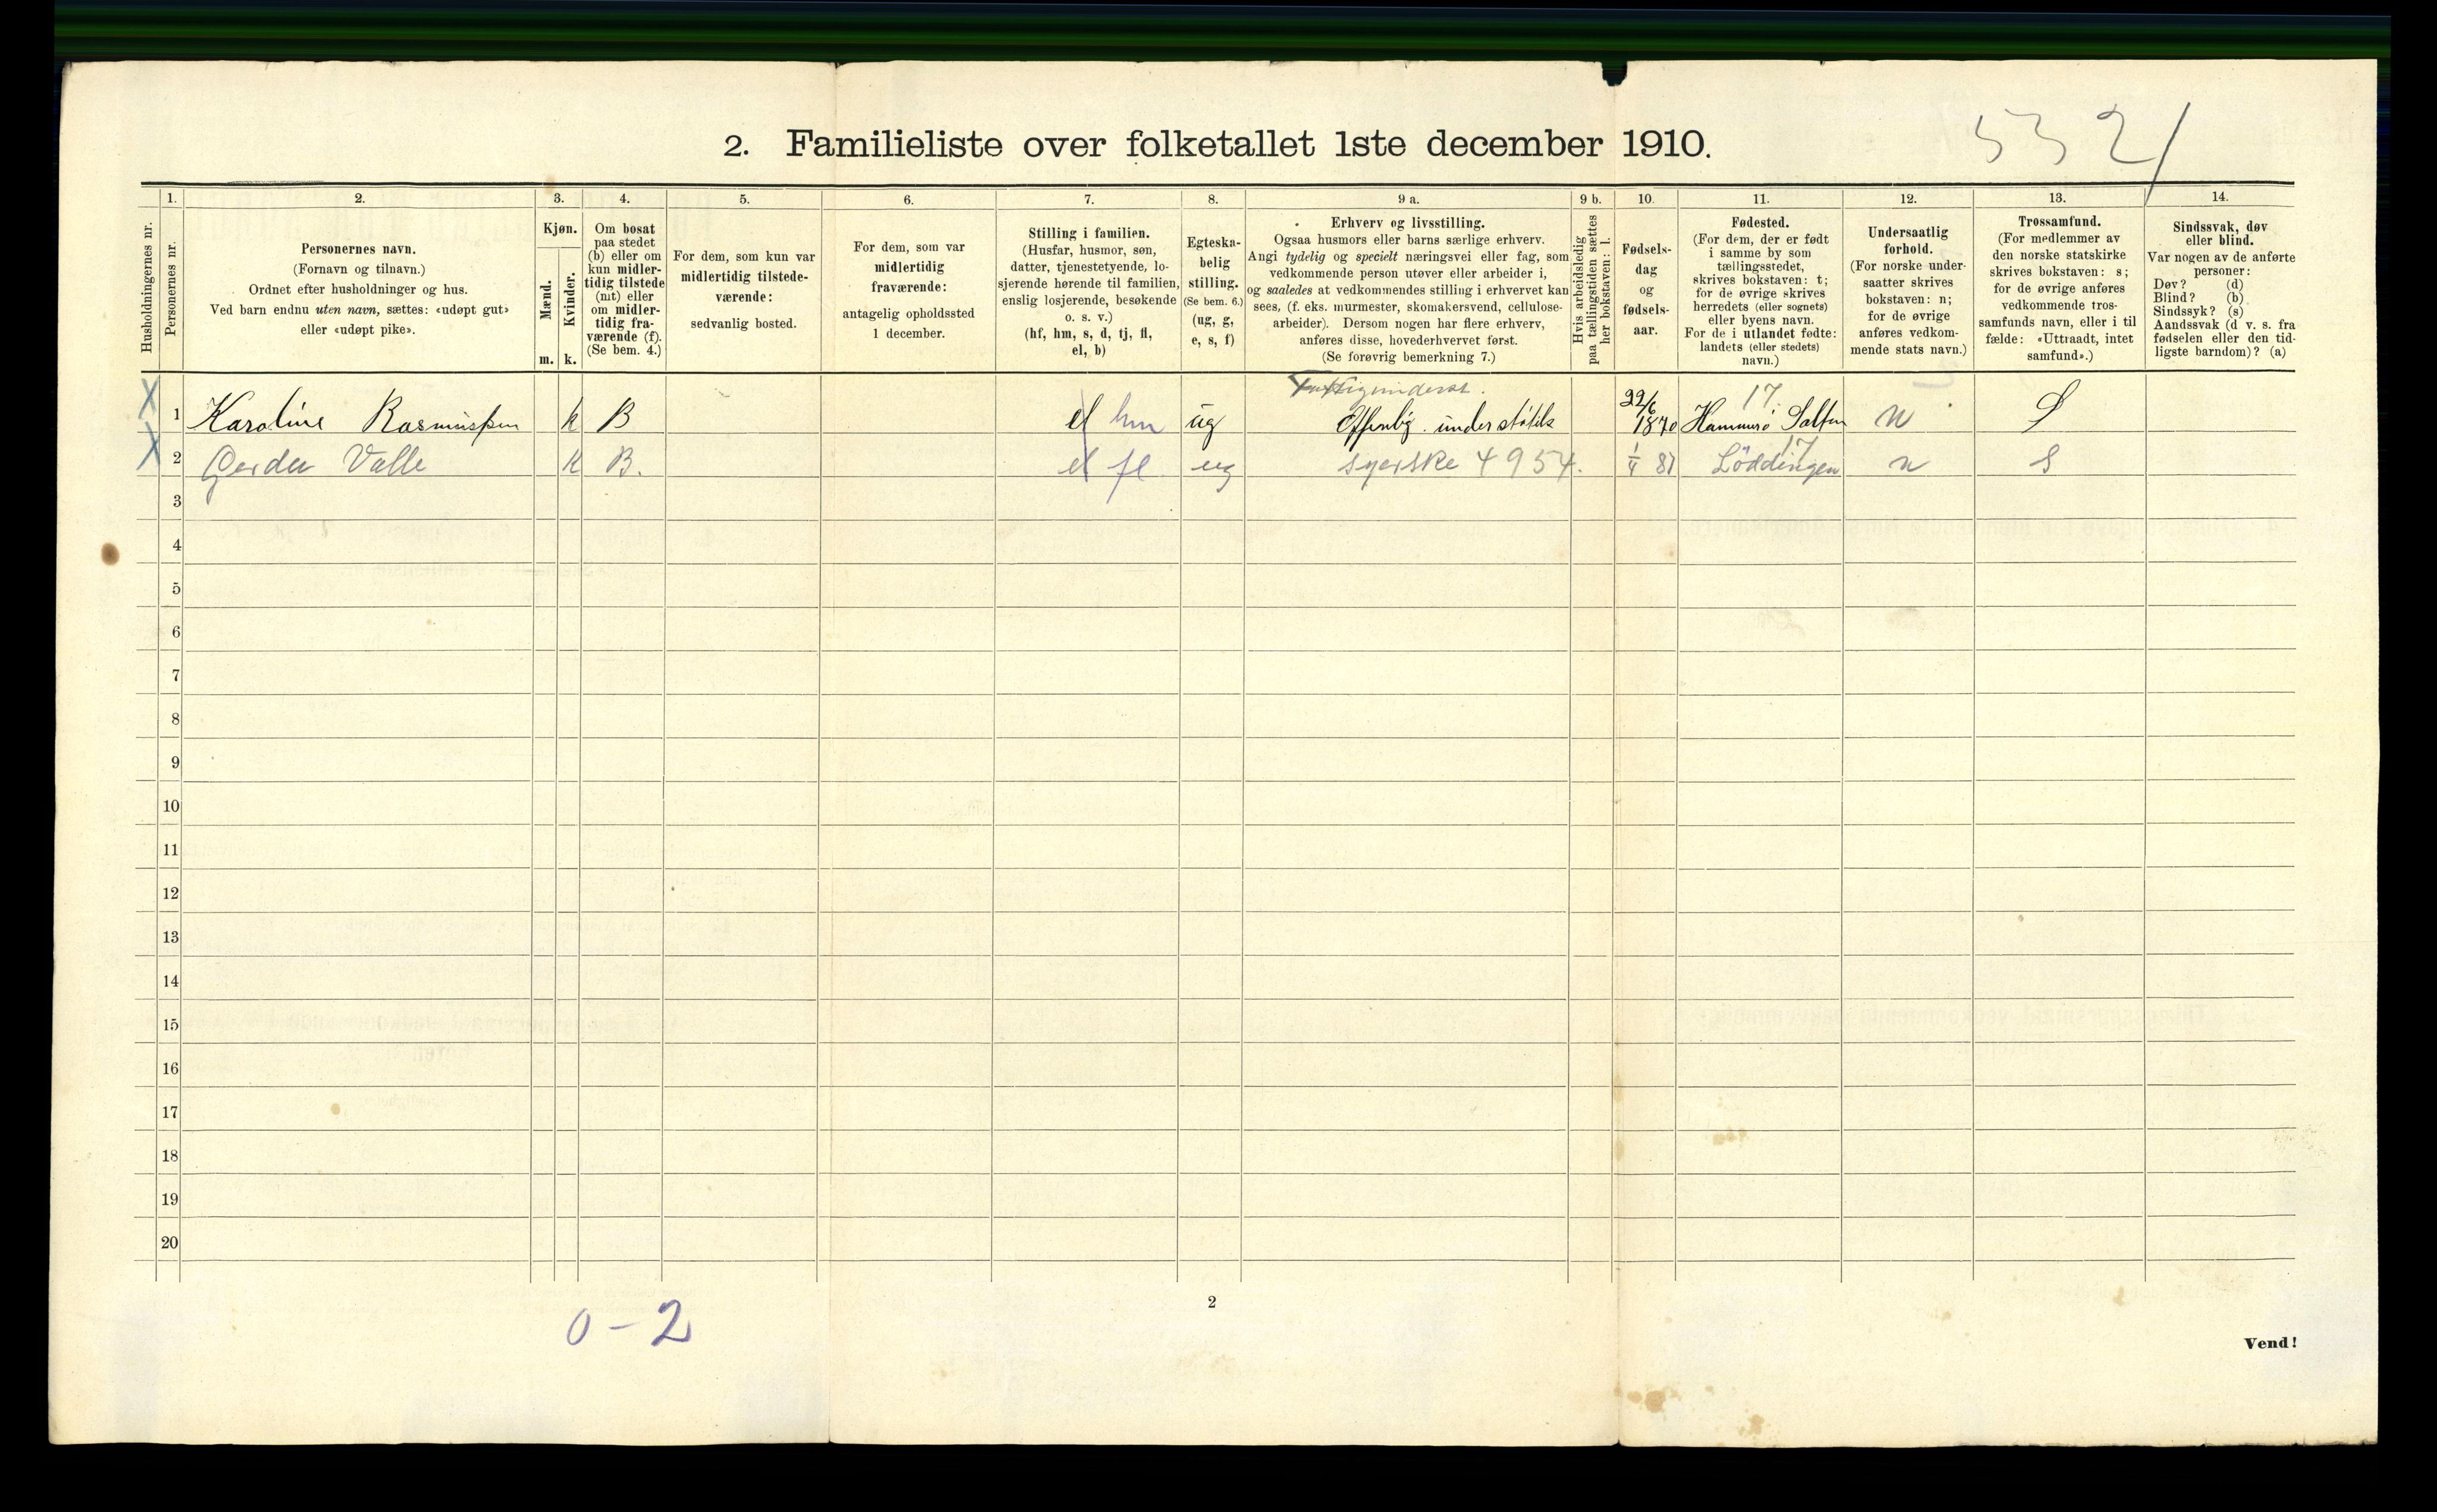 5321
2. Familieliste over folketallet 1ste december 1910.
1. 2. 3. 4. 5. 6. 7. 8. 9 a. 9 b. 10. 11. 12. 13. 14.
Husholdningernes nr.
Personernes nr.
Personernes navn.
(Fornavn og tilnavn.)
Ordnet efter husholdninger og hus.
Ved barn endnu uten navn, sættes: «udøpt gut»
eller «udøpt pike».
Kjøn.
Mænd.
Kvinder.
m. k.
Om bosat
paa stedet
(b) eller om
kun midler-
tidig tilstede
(mt) eller
om midler-
tidig fra-
værende (f).
(Se bem. 4.)
For dem, som kun var
midlertidig tilstede-
værende:
sedvanlig bosted.
For dem, som var
midlertidig
fraværende:
antagelig opholdssted
1 december.
Stilling i familien.
(Husfar, husmor, søn,
datter, tjenestetyende, lo-
sjerende hørende til familien,
enslig losjerende, besøkende
o. s. v.)
(hf, hm, s, d, tj, fl,
el, b)
Egteska-
belig
stilling.
(Se bem. 6.)
(ug, g,
e, s, f)
Erhverv og livsstilling.
Ogsaa husmors eller barns særlige erhverv.
Angi tydelig og specielt næringsvei eller fag, som
vedkommende person utøver eller arbeider i,
og saaledes at vedkommendes stilling i erhvervet kan
sees, (f. eks. murmester, skomakersvend, cellulose-
arbeider). Dersom nogen har flere erhverv,
anføres disse, hovederhvervet først.
(Se forøvrig bemerkning 7.)
Hvis arbeidsledig
paa tællingstiden sættes
her bokstaven: l.
Fødsels-
dag
og
fødsels-
aar.
Fødested.
(For dem, der er født
i samme by som
tællingsstedet,
skrives bokstaven: t;
for de øvrige skrives
herredets (eller sognets)
eller byens navn.
For de i utlandet fødte:
landets (eller stedets)
navn.)
Undersaatlig
forhold.
(For norske under-
saatter skrives
bokstaven: n;
for de øvrige
anføres vedkom-
mende stats navn.)
Trossamfund.
(For medlemmer av
den norske statskirke
skrives bokstaven: s;
for de øvrige anføres
vedkommende tros-
samfunds navn, eller i til
fælde: «Uttraadt, intet
samfund».)
Sindssvak, døv
eller blind.
Var nogen av de anførte
personer:
Døv? (d)
Blind? (b)
Sindssyk? (s)
Aandssvak (d v. s. fra
fødselen eller den tid-
ligste barndom)? (a)
Fattigunderst. 17.
X 1 Karoline Rasmussen k B el hm ug Offenlig understøtels 22/6 1870 Hammerø Salten n S
17
X 2 Gerda Valle K B. el fl ug syerske 4954. 1/4 87 Löddingen n S
3
4
5
6
7
8
9
10
11
12
13
14
15
16
17
18
19
20
0 - 2
2
Vend!